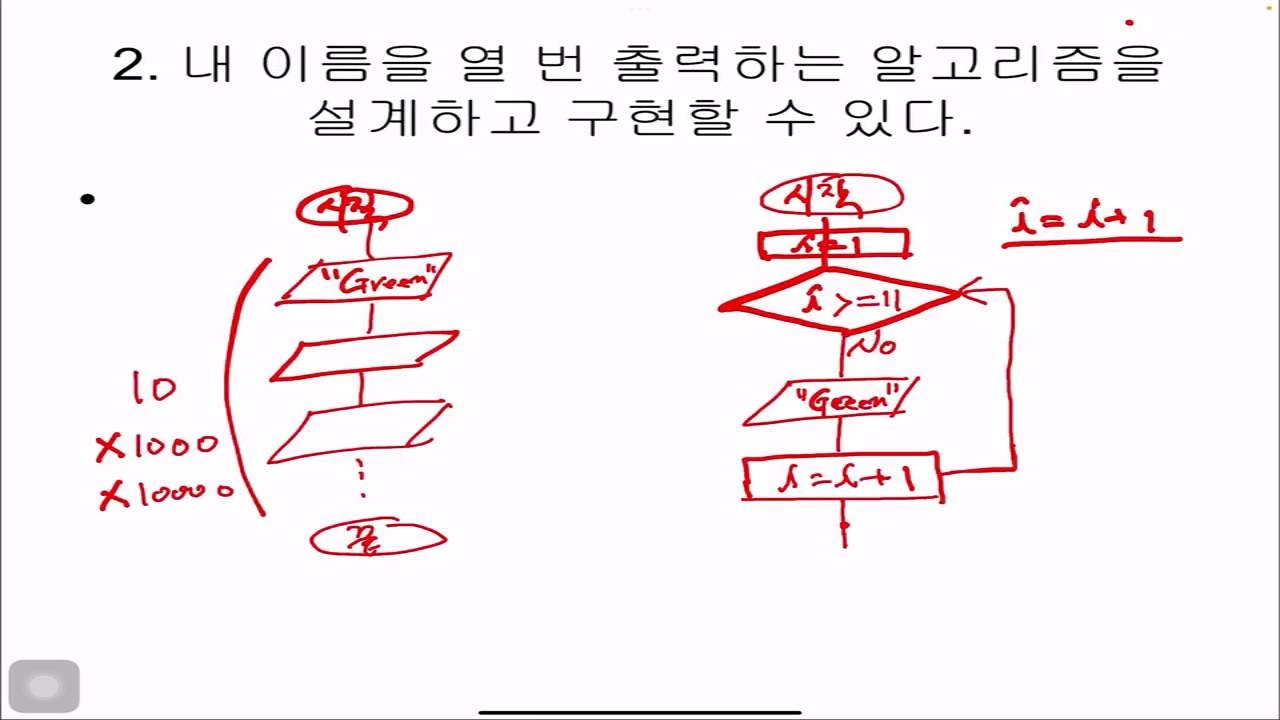 2. 내 이름을 열 번 출력하는 알고리즘을
설계하고 구현할 수 있다.
시작
"Green"
10
×1000
×10000
끝
시작
i=1
i>=11
No
"Green"
i=i+1
i=i+1